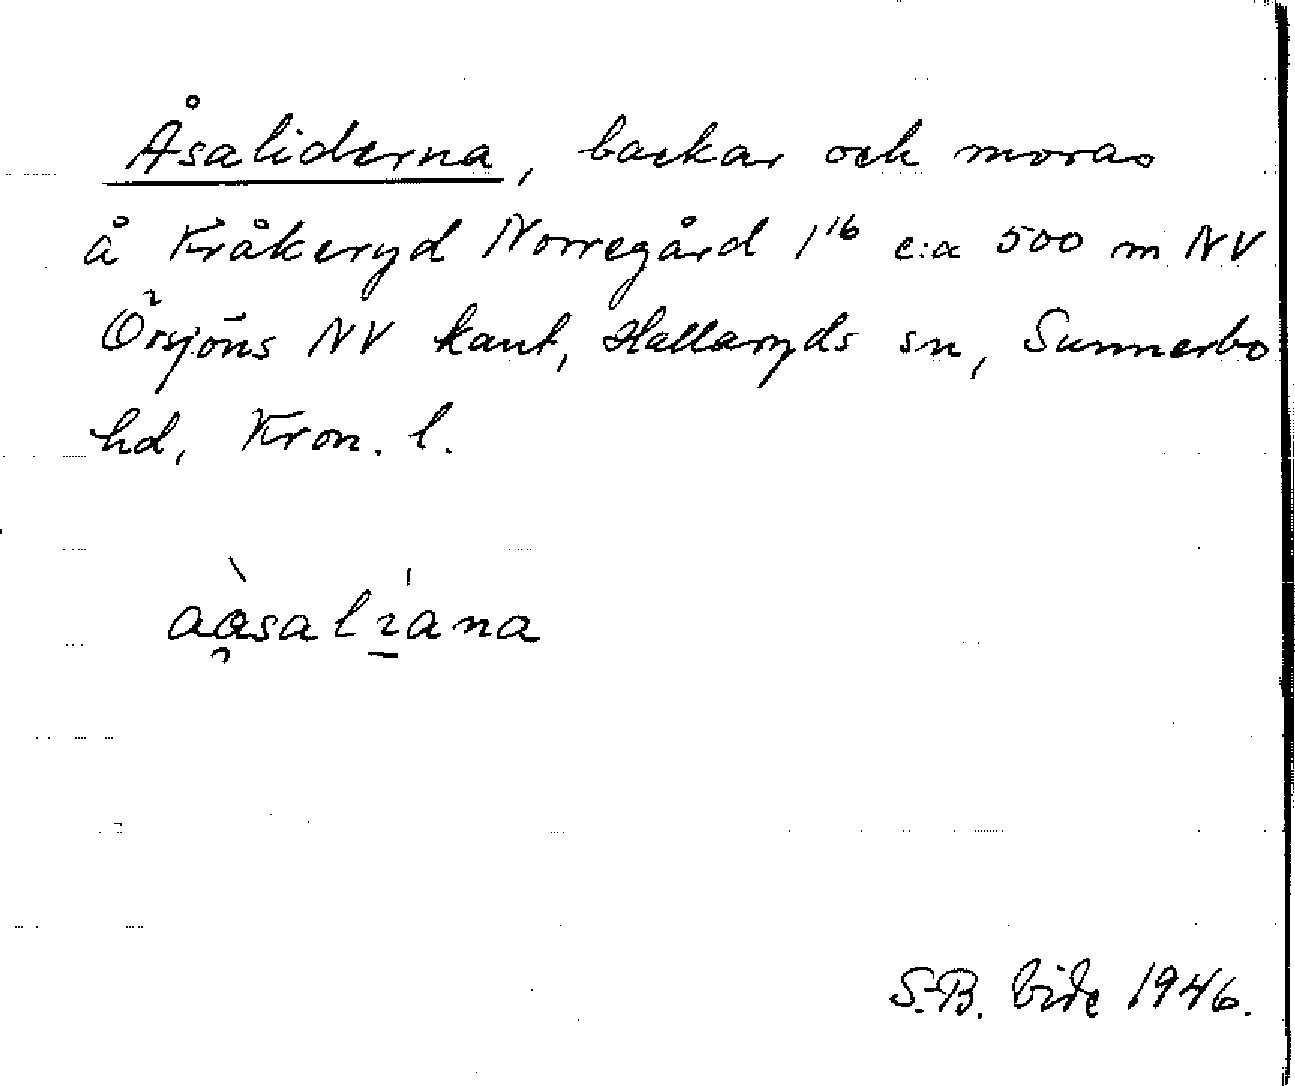 Åsaliderna, backar och moras
å Kråkeryd Norregård 1¹⁶ c:a 500 m NV
Örsjöns NV kant, Hallaryds sn, Sunnerbo
hd, Kron. l.
aàsalíana
S.-B. Vide 1946.